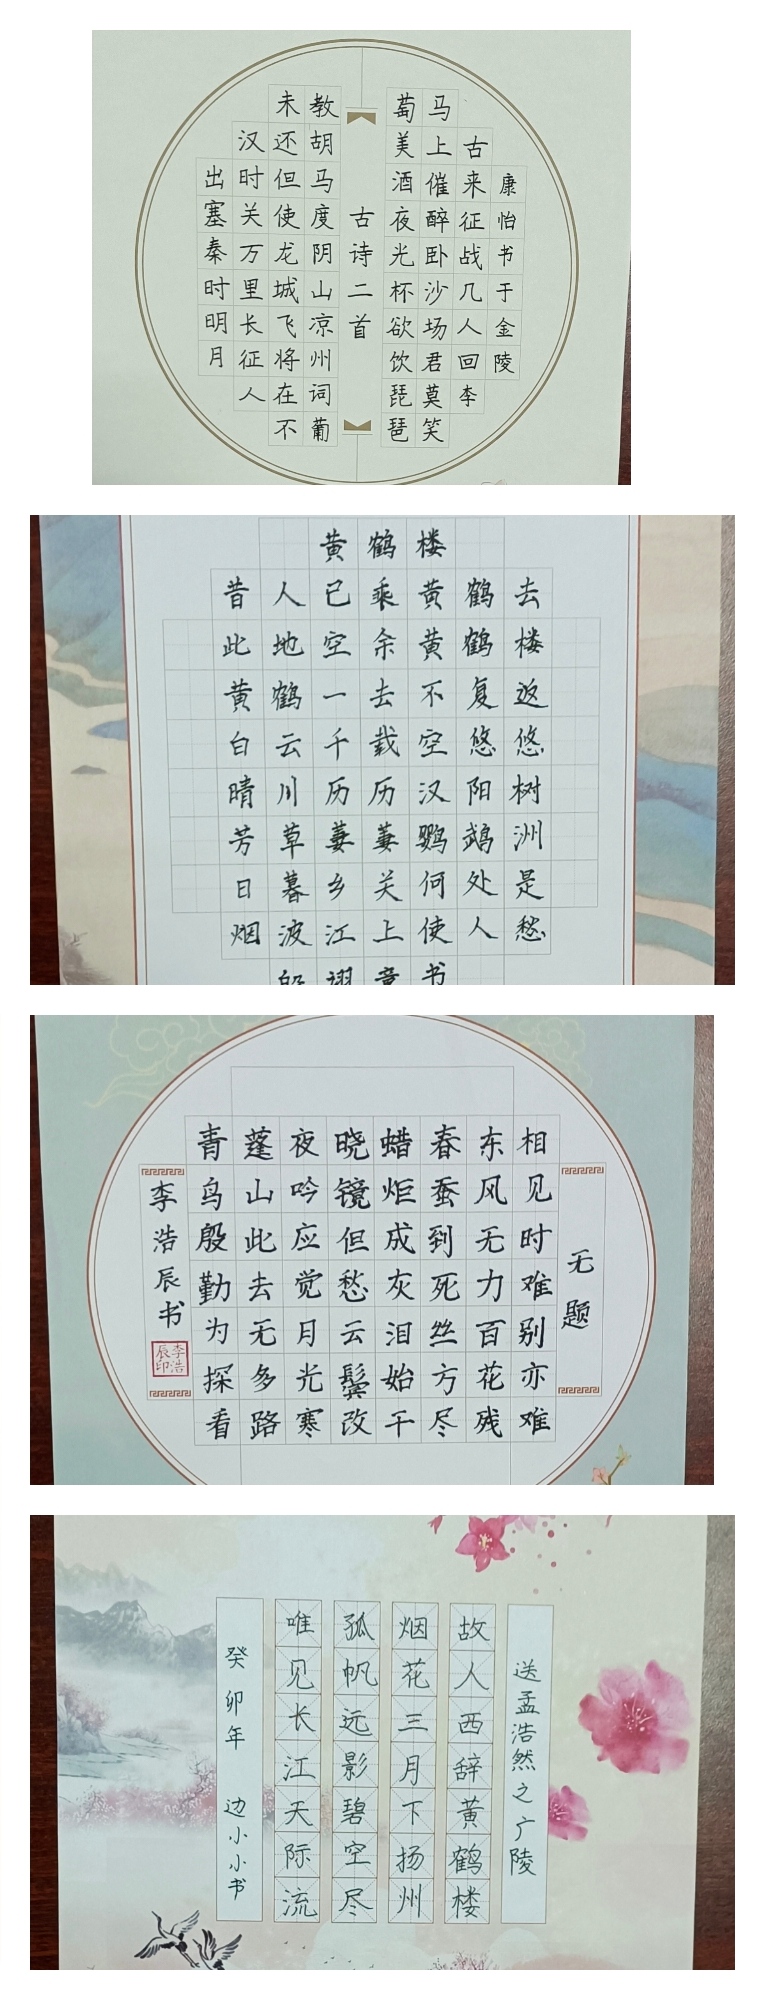 古诗二首
出塞秦时明月
汉时关万里长征人
未还但使龙城飞将在不
教胡马度阴山凉州词葡
萄美酒夜光杯欲饮琵琶
马上催醉卧沙场君莫笑
古来征战几人回李
康怡书于金陵
黄鹤楼
昔人已乘黄鹤去
此地空余黄鹤楼
黄鹤一去不复返
白云千载空悠悠
晴川历历汉阳树
芳草萋萋鹦鹉洲
日暮乡关何处是
烟波江上使人愁
书
无题
相见时难别亦难
东风无力百花残
春蚕到死丝方尽
蜡炬成灰泪始干
晓镜但愁云鬓改
夜吟应觉月光寒
蓬山此去无多路
青鸟殷勤为探看
李浩辰书
李浩辰印
送孟浩然之广陵
故人西辞黄鹤楼
烟花三月下扬州
孤帆远影碧空尽
唯见长江天际流
癸卯年 边小小书